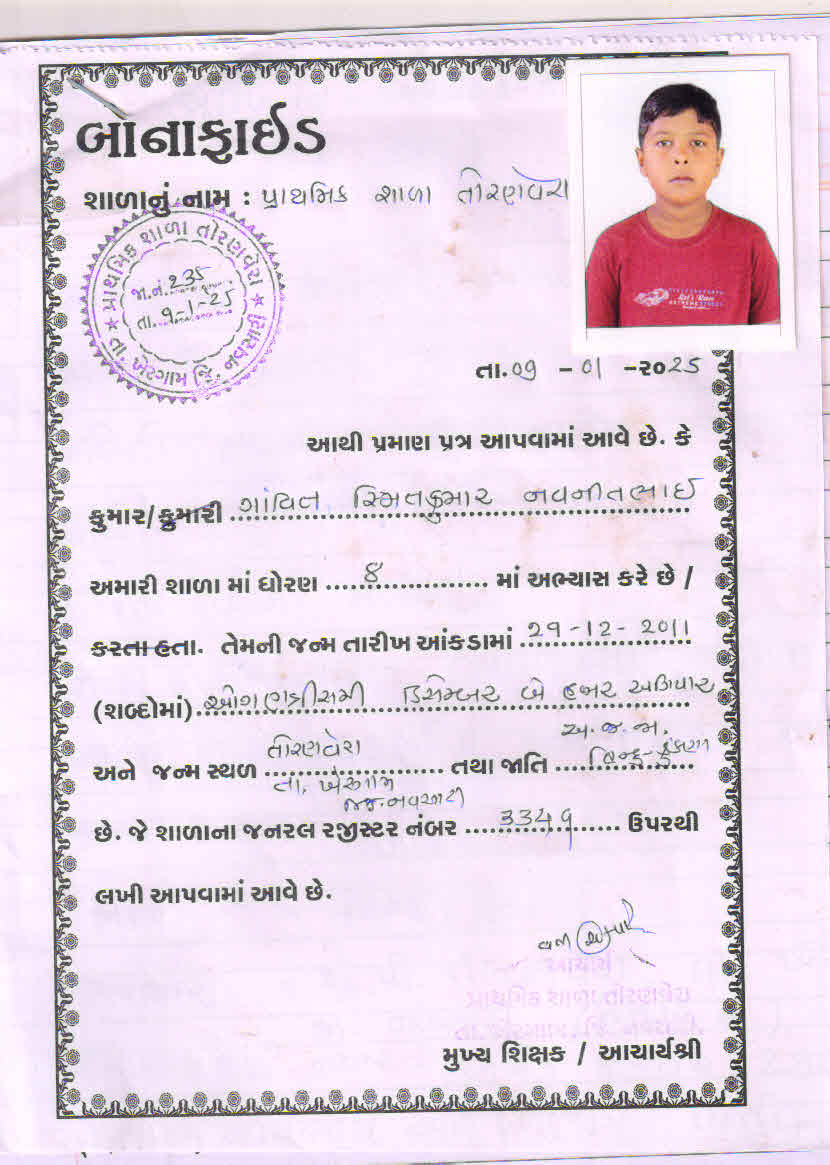 બોનાફાઈડ
શાળાનું નામ : પ્રાથમિક શાળા તોરણવેરા
પ્રાથમિક શાળા તોરણવેરા
જા.નં. 235
તા. ૧-1-25
તા. ખેરગામ જિ. નવસારી
તા.૦૧ - ૦1 -૨૦25
આથી પ્રમાણ પત્ર આપવામાં આવે છે. કે
કુમાર/કુમારી ગાંવિત સ્મિતકુમાર નવનીતભાઈ
અમારી શાળા માં ધોરણ 8 માં અભ્યાસ કરે છે /
કરતા હતા. તેમની જન્મ તારીખ આંકડામાં 29-12-2011
(શબ્દોમાં) ઓગણત્રીસમી ડિસેમ્બર બે હજાર અગિયાર
અ.જ.જા.
અને જન્મ સ્થળ તોરણવેરા તથા જાતિ હિન્દુ-કુંકણા
તા. ખેરગામ
જિ.નવસારી
છે. જે શાળાના જનરલ રજીસ્ટર નંબર 334૧ ઉપરથી
લખી આપવામાં આવે છે.
આચાર્ય
પ્રાથમિક શાળા તોરણવેરા
તા. ખેરગામ, જિ. નવસારી.
મુખ્ય શિક્ષક / આચાર્યશ્રી